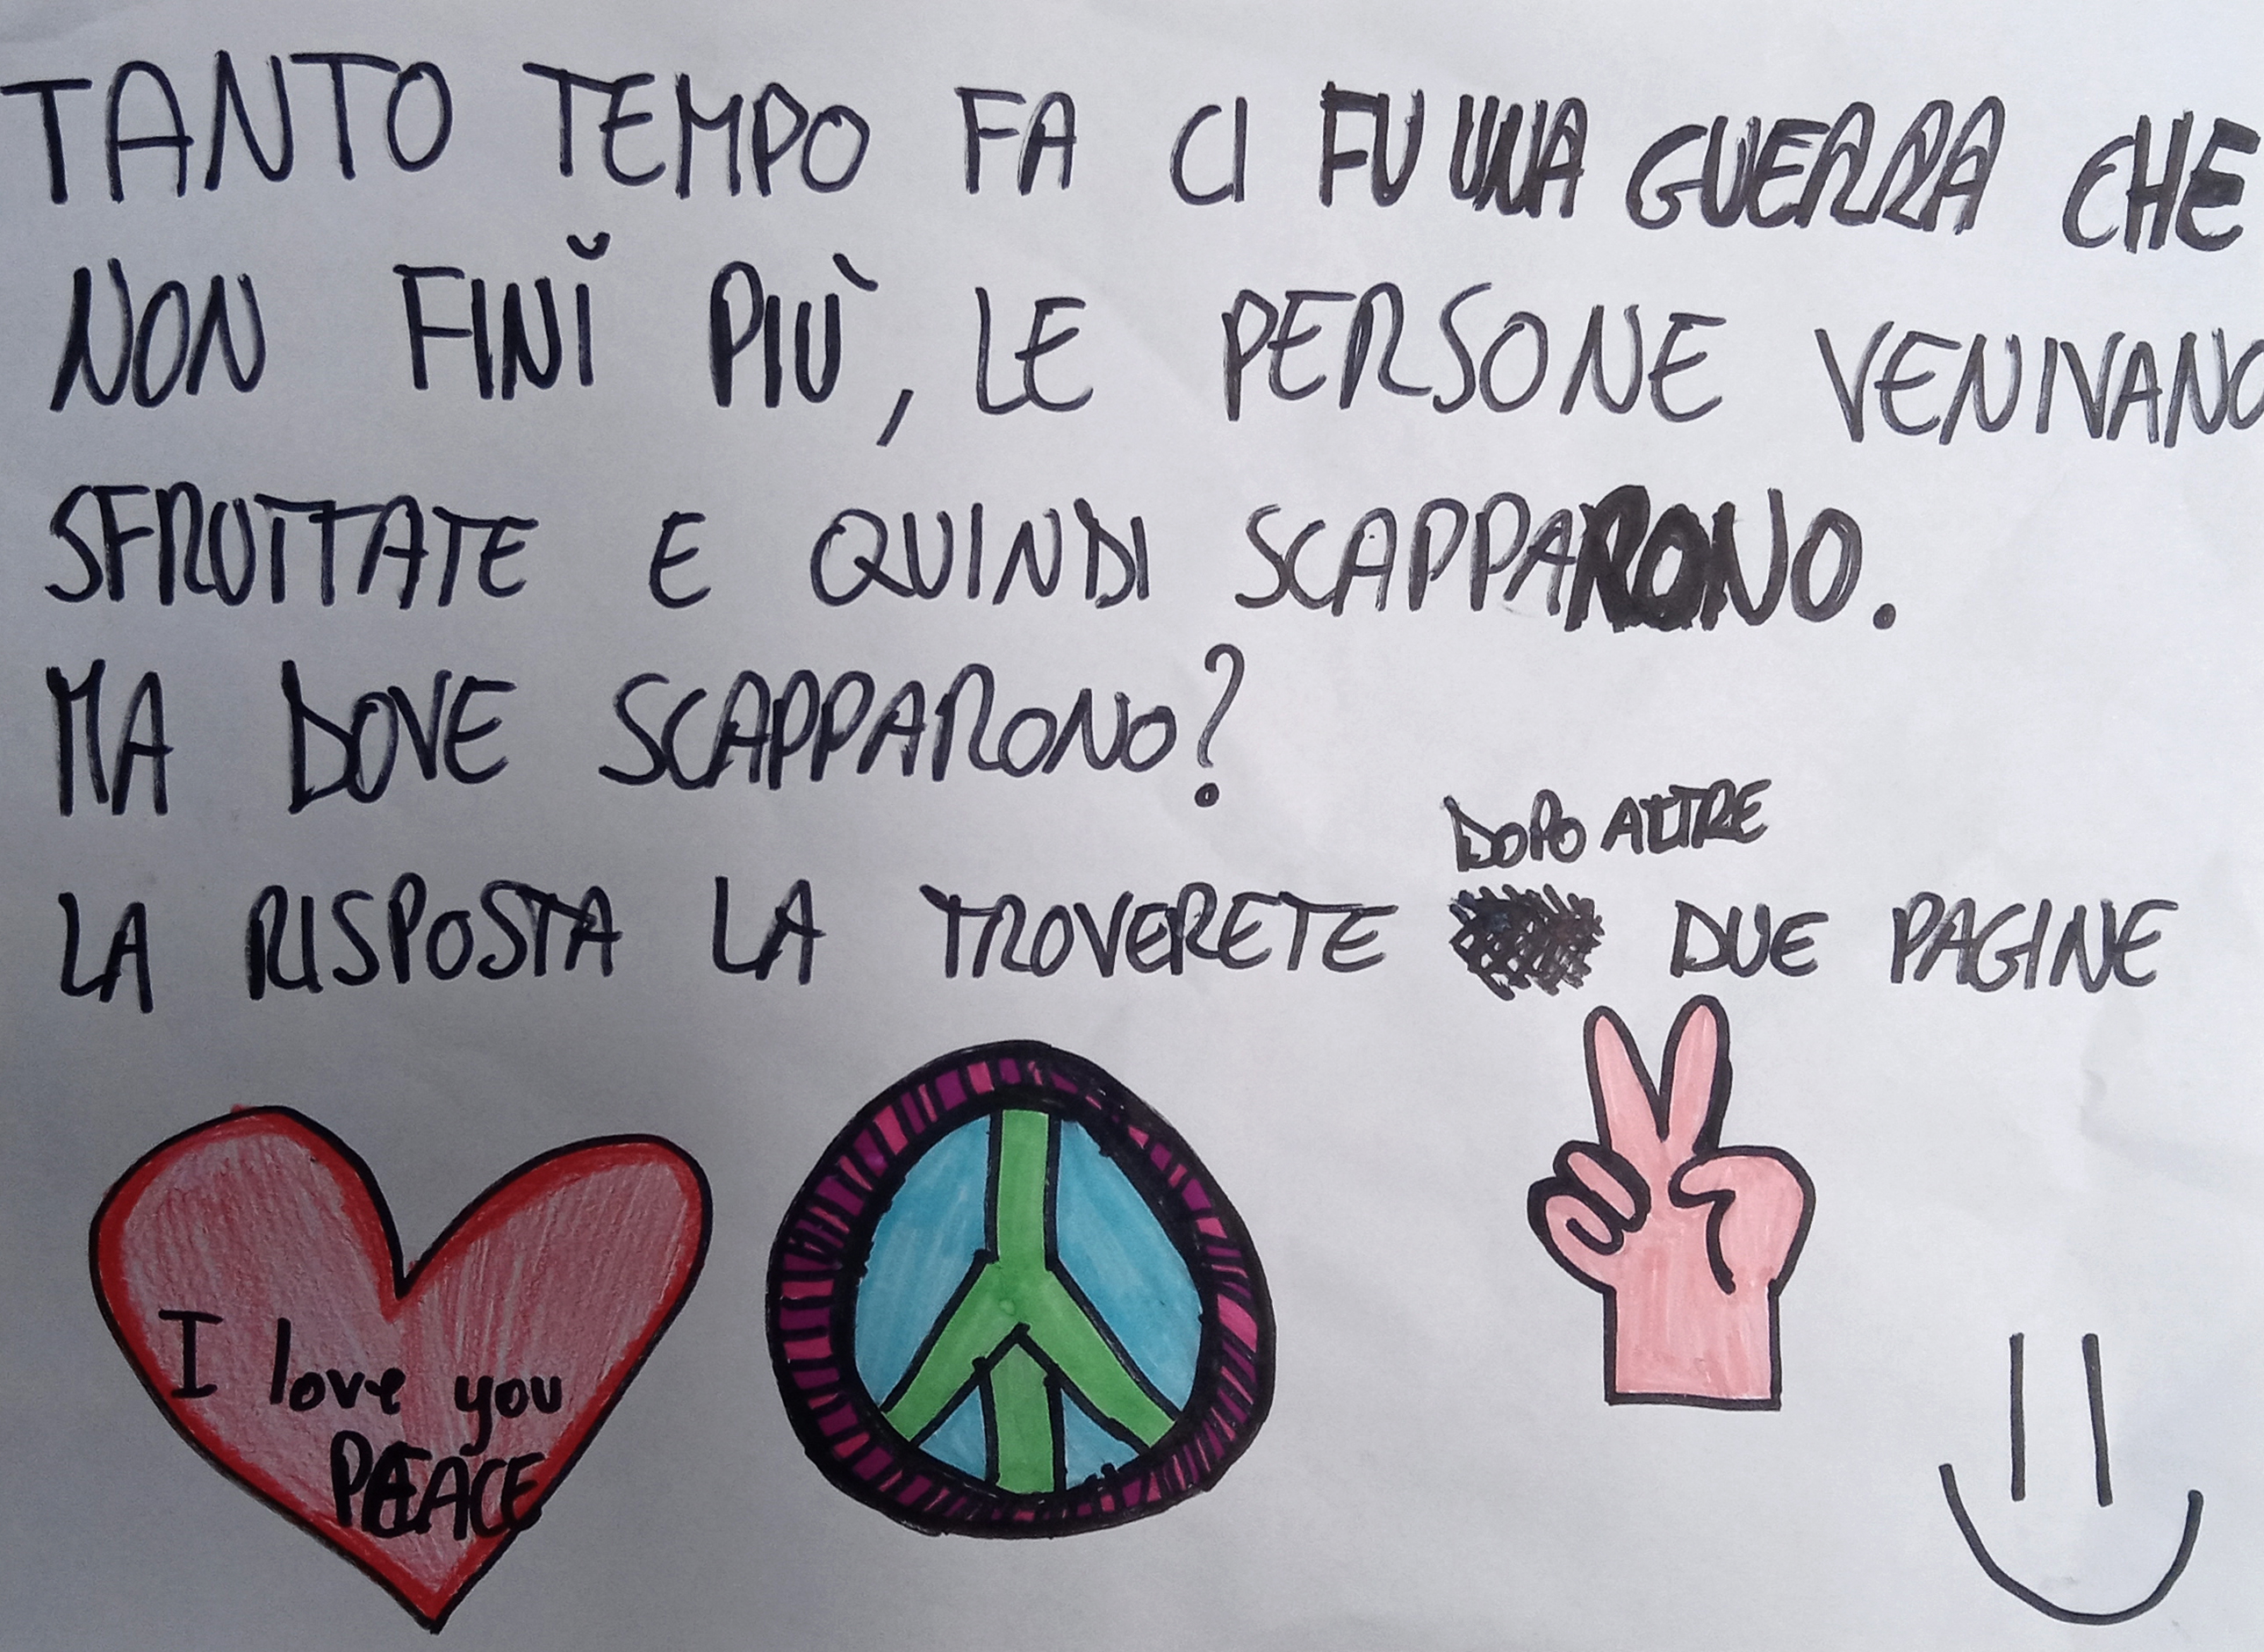 TANTO TEMPO FA CI FU UNA GUERRA CHE
NON FINĬ PIÙ, LE PERSONE VENIVANO
SFRUTTATE E QUINDI SCAPPARONO.
MA DOVE SCAPPARONO?
DOPO ALTRE
LA RISPOSTA LA TROVERETE DUE PAGINE
I love you
PEACE